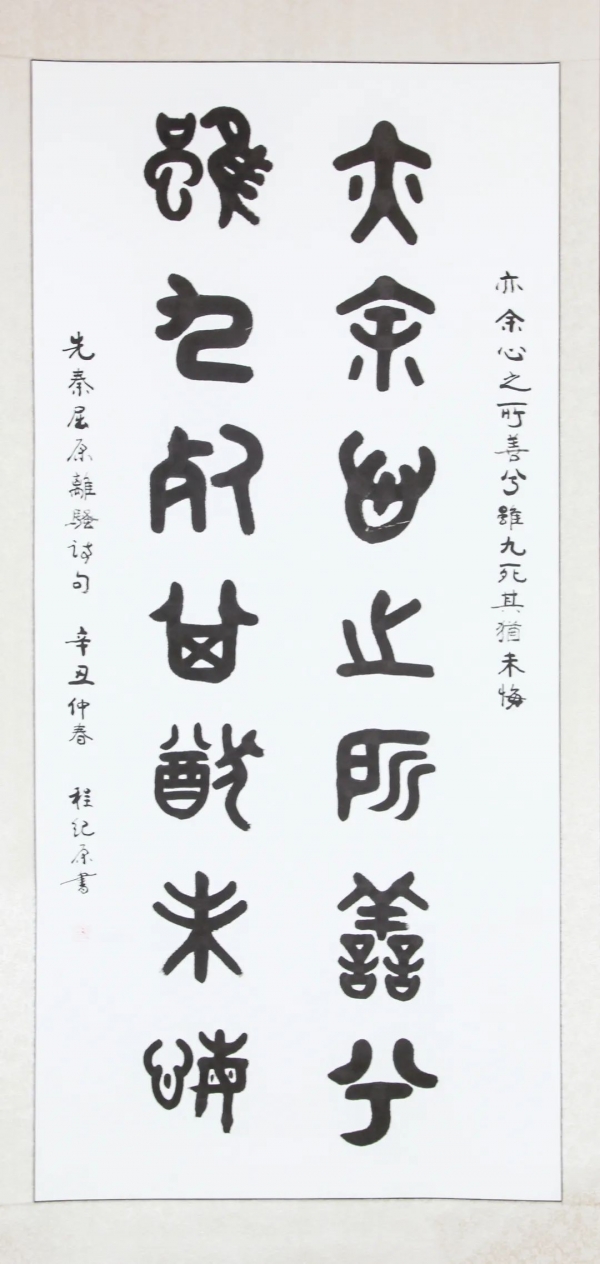 亦余心之所善兮雖九死其猶未悔
亦余心之所善兮
雖九死其猶未悔
先秦屈原離騷詩句 辛丑仲春 程紀原書